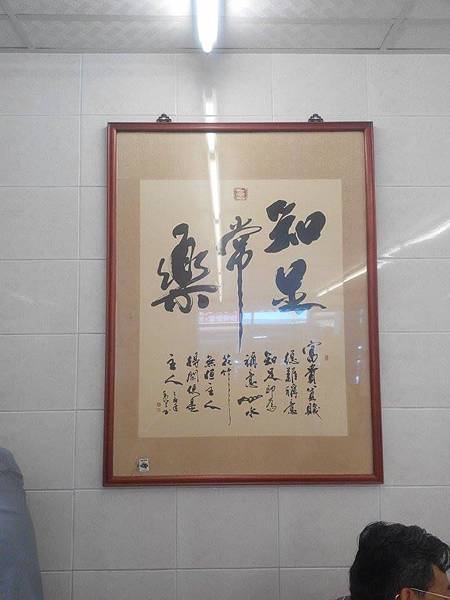 知足
常
樂
富貴貧賤
總難稱意
知足即為
稱意山水
花竹
無恒主人
得閒便是
主人